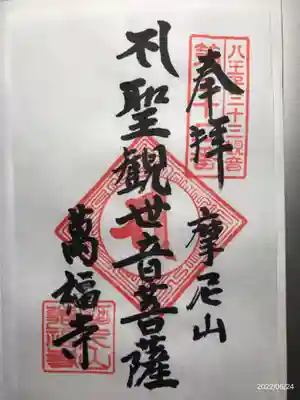 奉拝
八王子三十三観音
摩尼山
札聖觀世音菩薩
萬福寺
2022/06/24